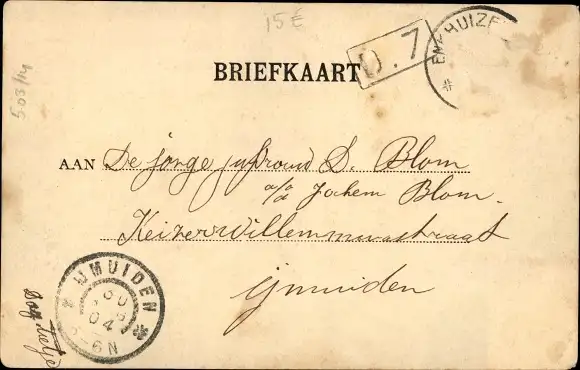 15 €
503/14
ENKHUIZEN
D.7
BRIEFKAART
AAN De jonge jufvrouw D. Blom
a/b Jochem Blom.
Keizer Willemmenastraat
ijmuiden
IJMUIDEN
04
6-N
Dag Tietje